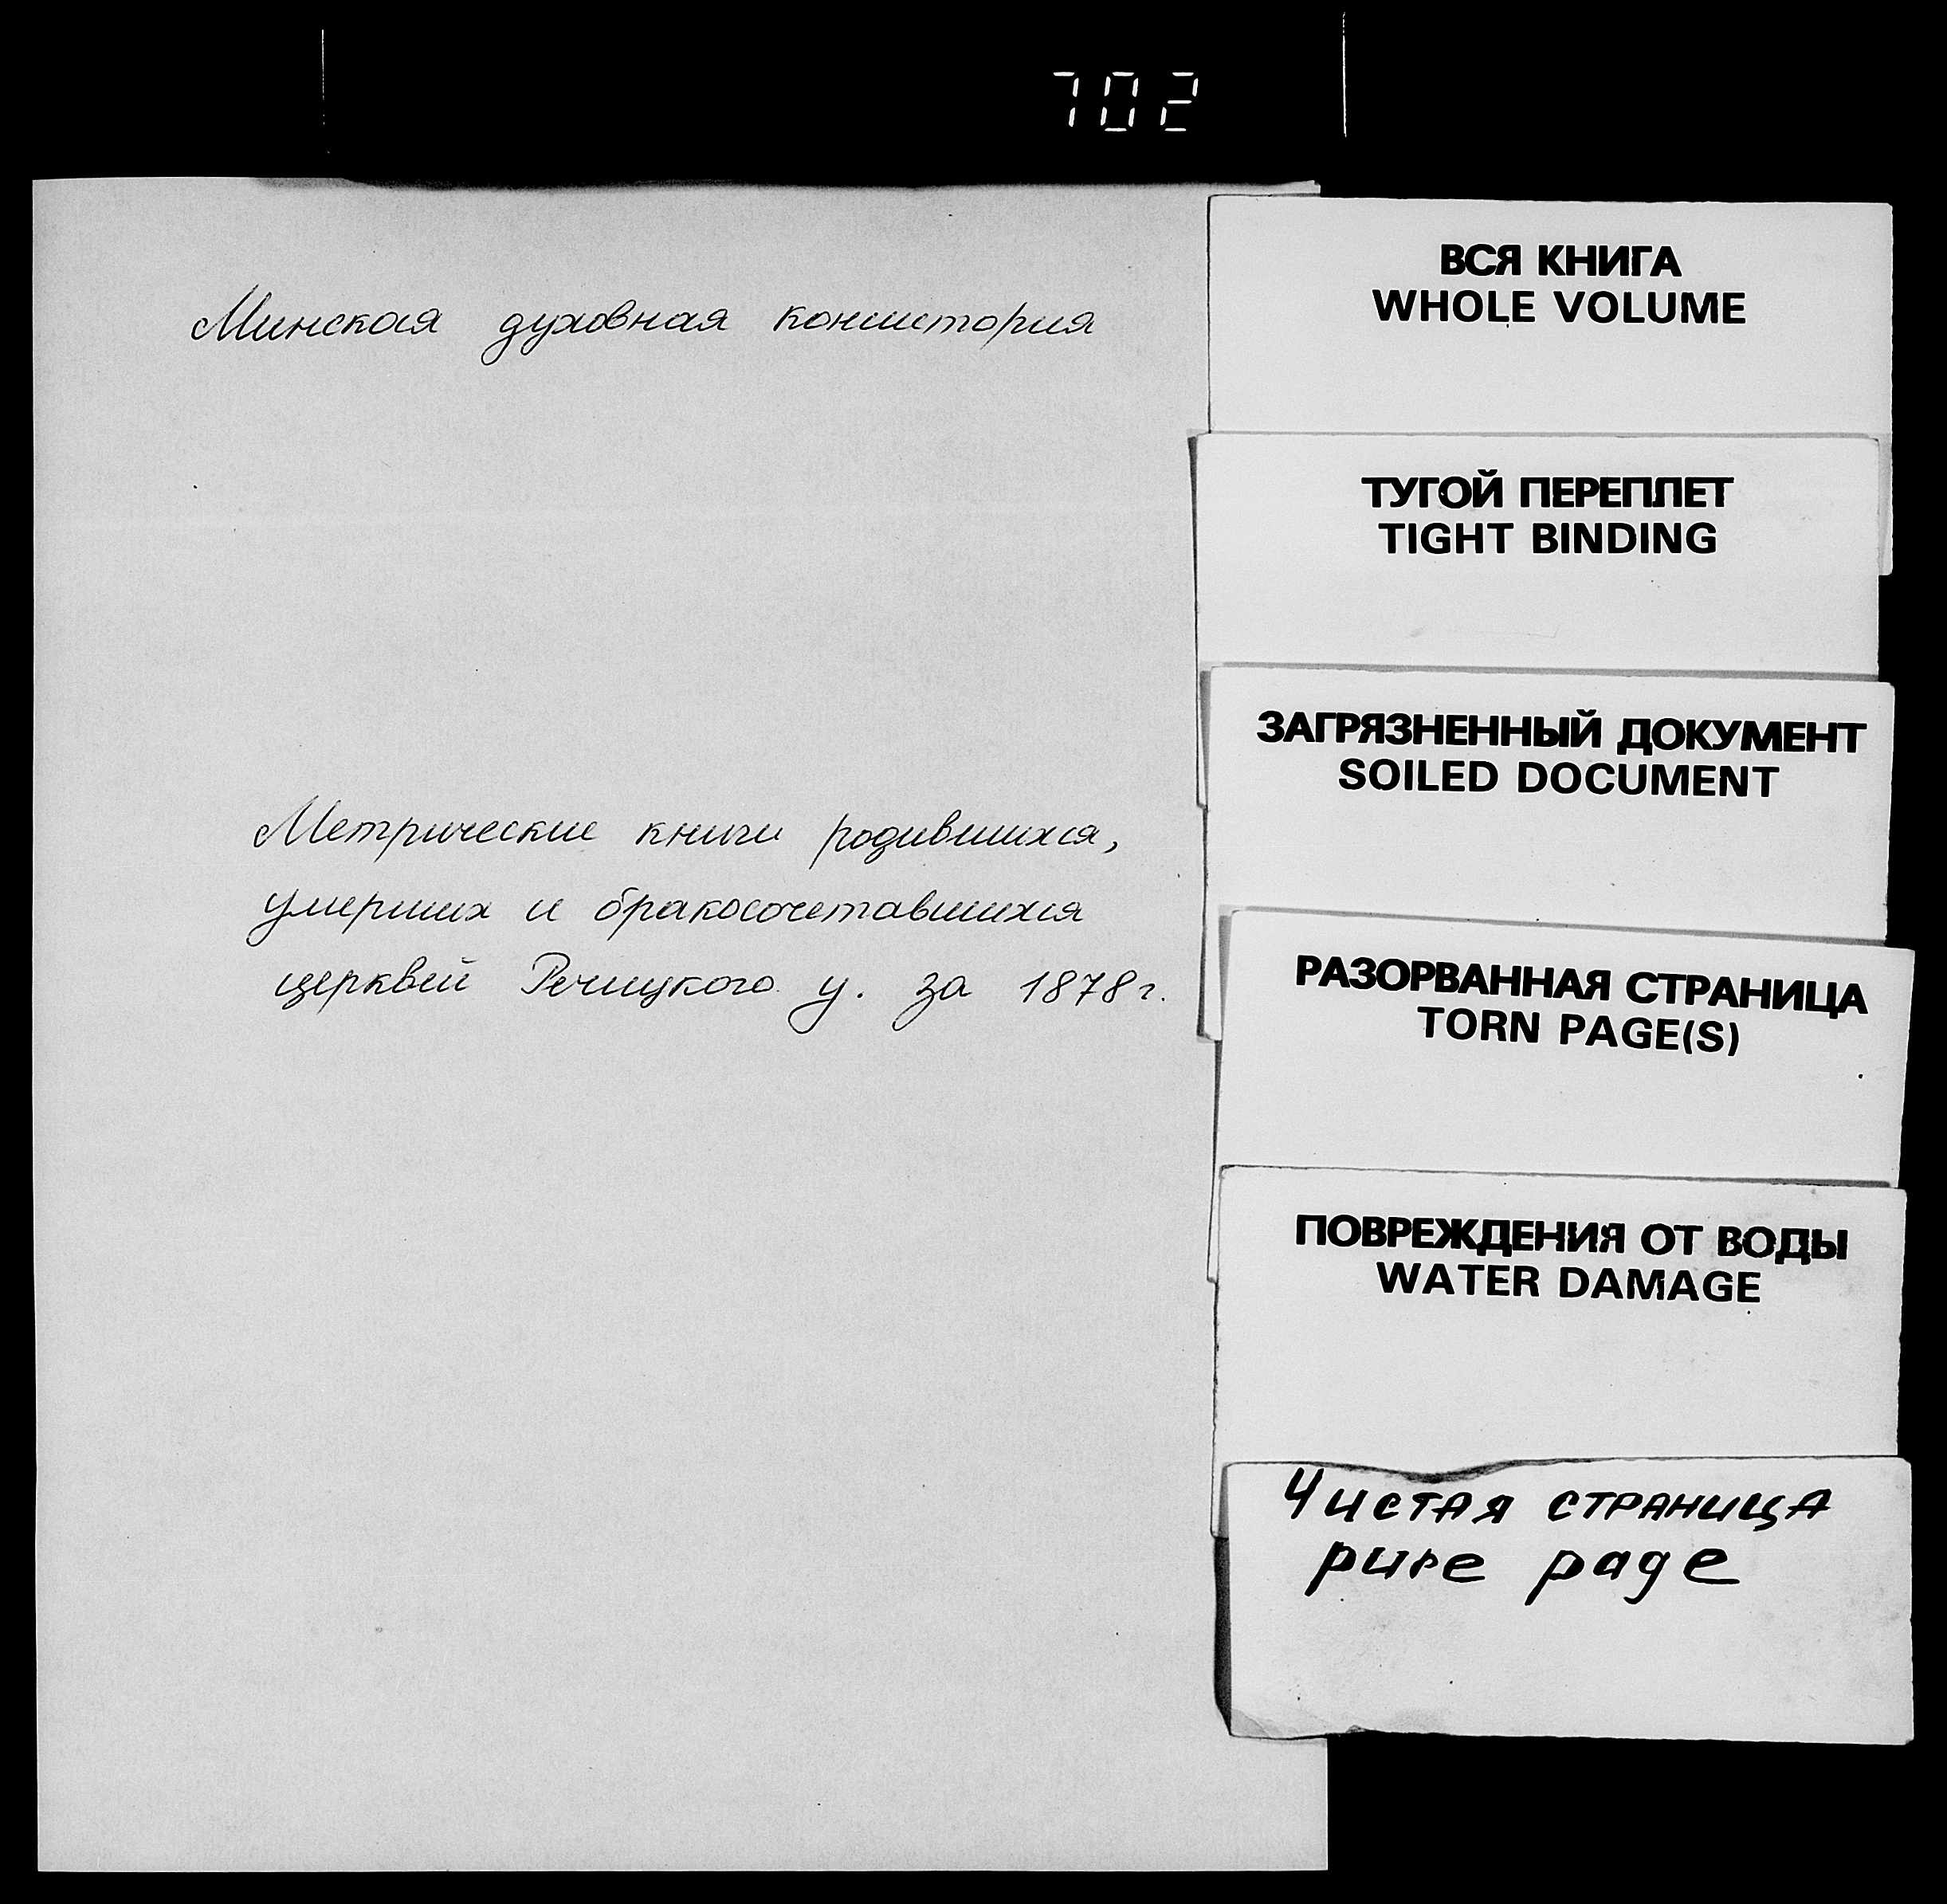 702
Минская духовная консистория
Метрические книги родившихся,
умерших и бракосочетавшихся
церквей Речицкого у. за 1878 г.
ВСЯ КНИГА
WHOLE VOLUME
ТУГОЙ ПЕРЕПЛЕТ
TIGHT BINDING
ЗАГРЯЗНЕННЫЙ ДОКУМЕНТ
SOILED DOCUMENT
РАЗОРВАННАЯ СТРАНИЦА
TORN PAGE(S)
ПОВРЕЖДЕНИЯ ОТ ВОДЫ
WATER DAMAGE
Чистая страница
pure page